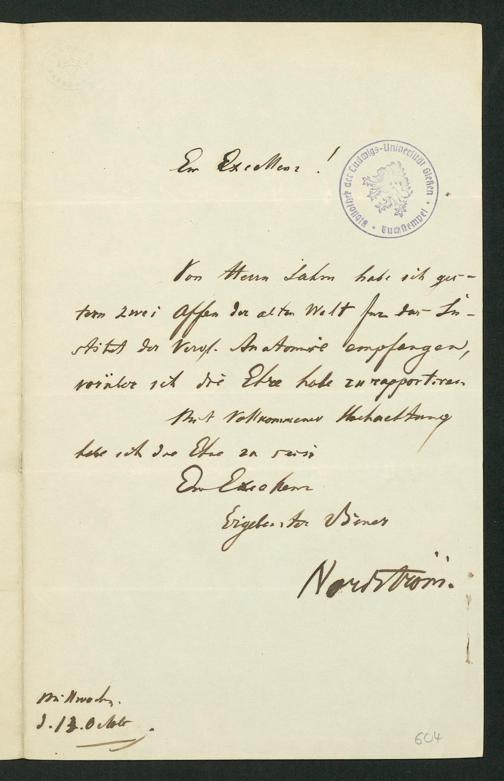 Ew Excellenz!
Bibliothek der Ludwigs-Universität Gießen
Buchstempel
Von Herrn Sahm habe ich ges-
tern zwei Affen der alten Welt fur das In-
stitut der Vergl. Anatomie empfangen,
worüber ich die Ehre habe zu rapportiren
Mit Vollkommener Hochachtung
habe ich die Ehre zu sein
Ew Excellenz
Ergebenster Diener
Nordström.
Mittwoch.
d. 13. Octobr
604